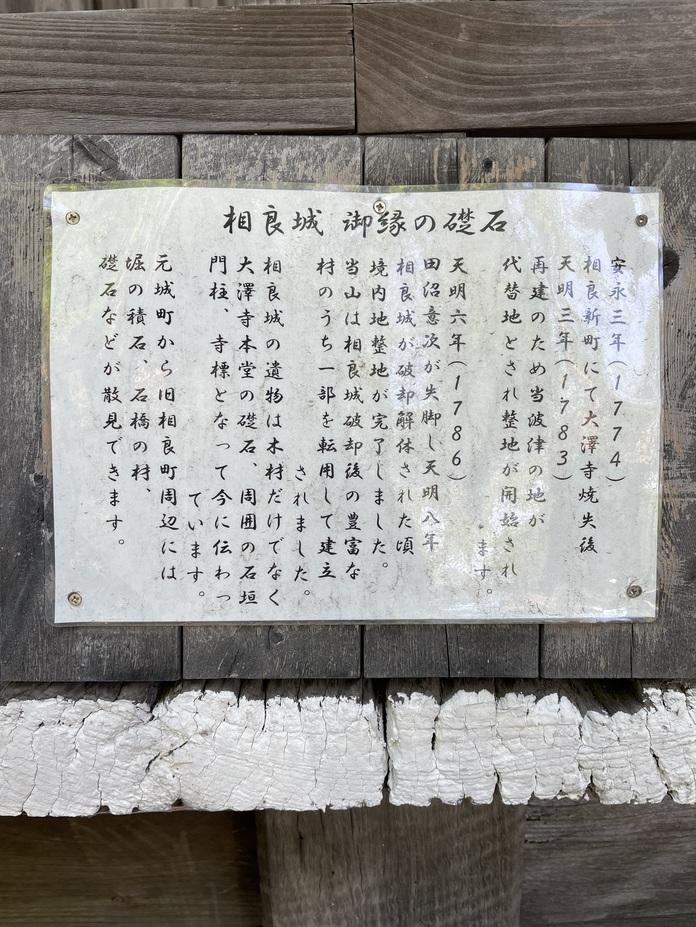 相良城 御縁の礎石
安永三年(1774)
相良新町にて大澤寺焼失後
天明三年(1783)
再建のため当波津の地が
代替地とされ整地が開始され
ます。
天明六年(1786)
田沼意次が失脚し天明八年
相良城が破却解体された頃
境内地整地が完了しました。
当山は相良城破却後の豊富な
材のうち一部を転用して建立
されました。
相良城の遺物は木材だけでなく
大澤寺本堂の礎石、周囲の石垣
門柱、寺標となって今に伝わっ
ています。
元城町から旧相良町周辺には
堀の積石、石橋の材、
礎石などが散見できます。